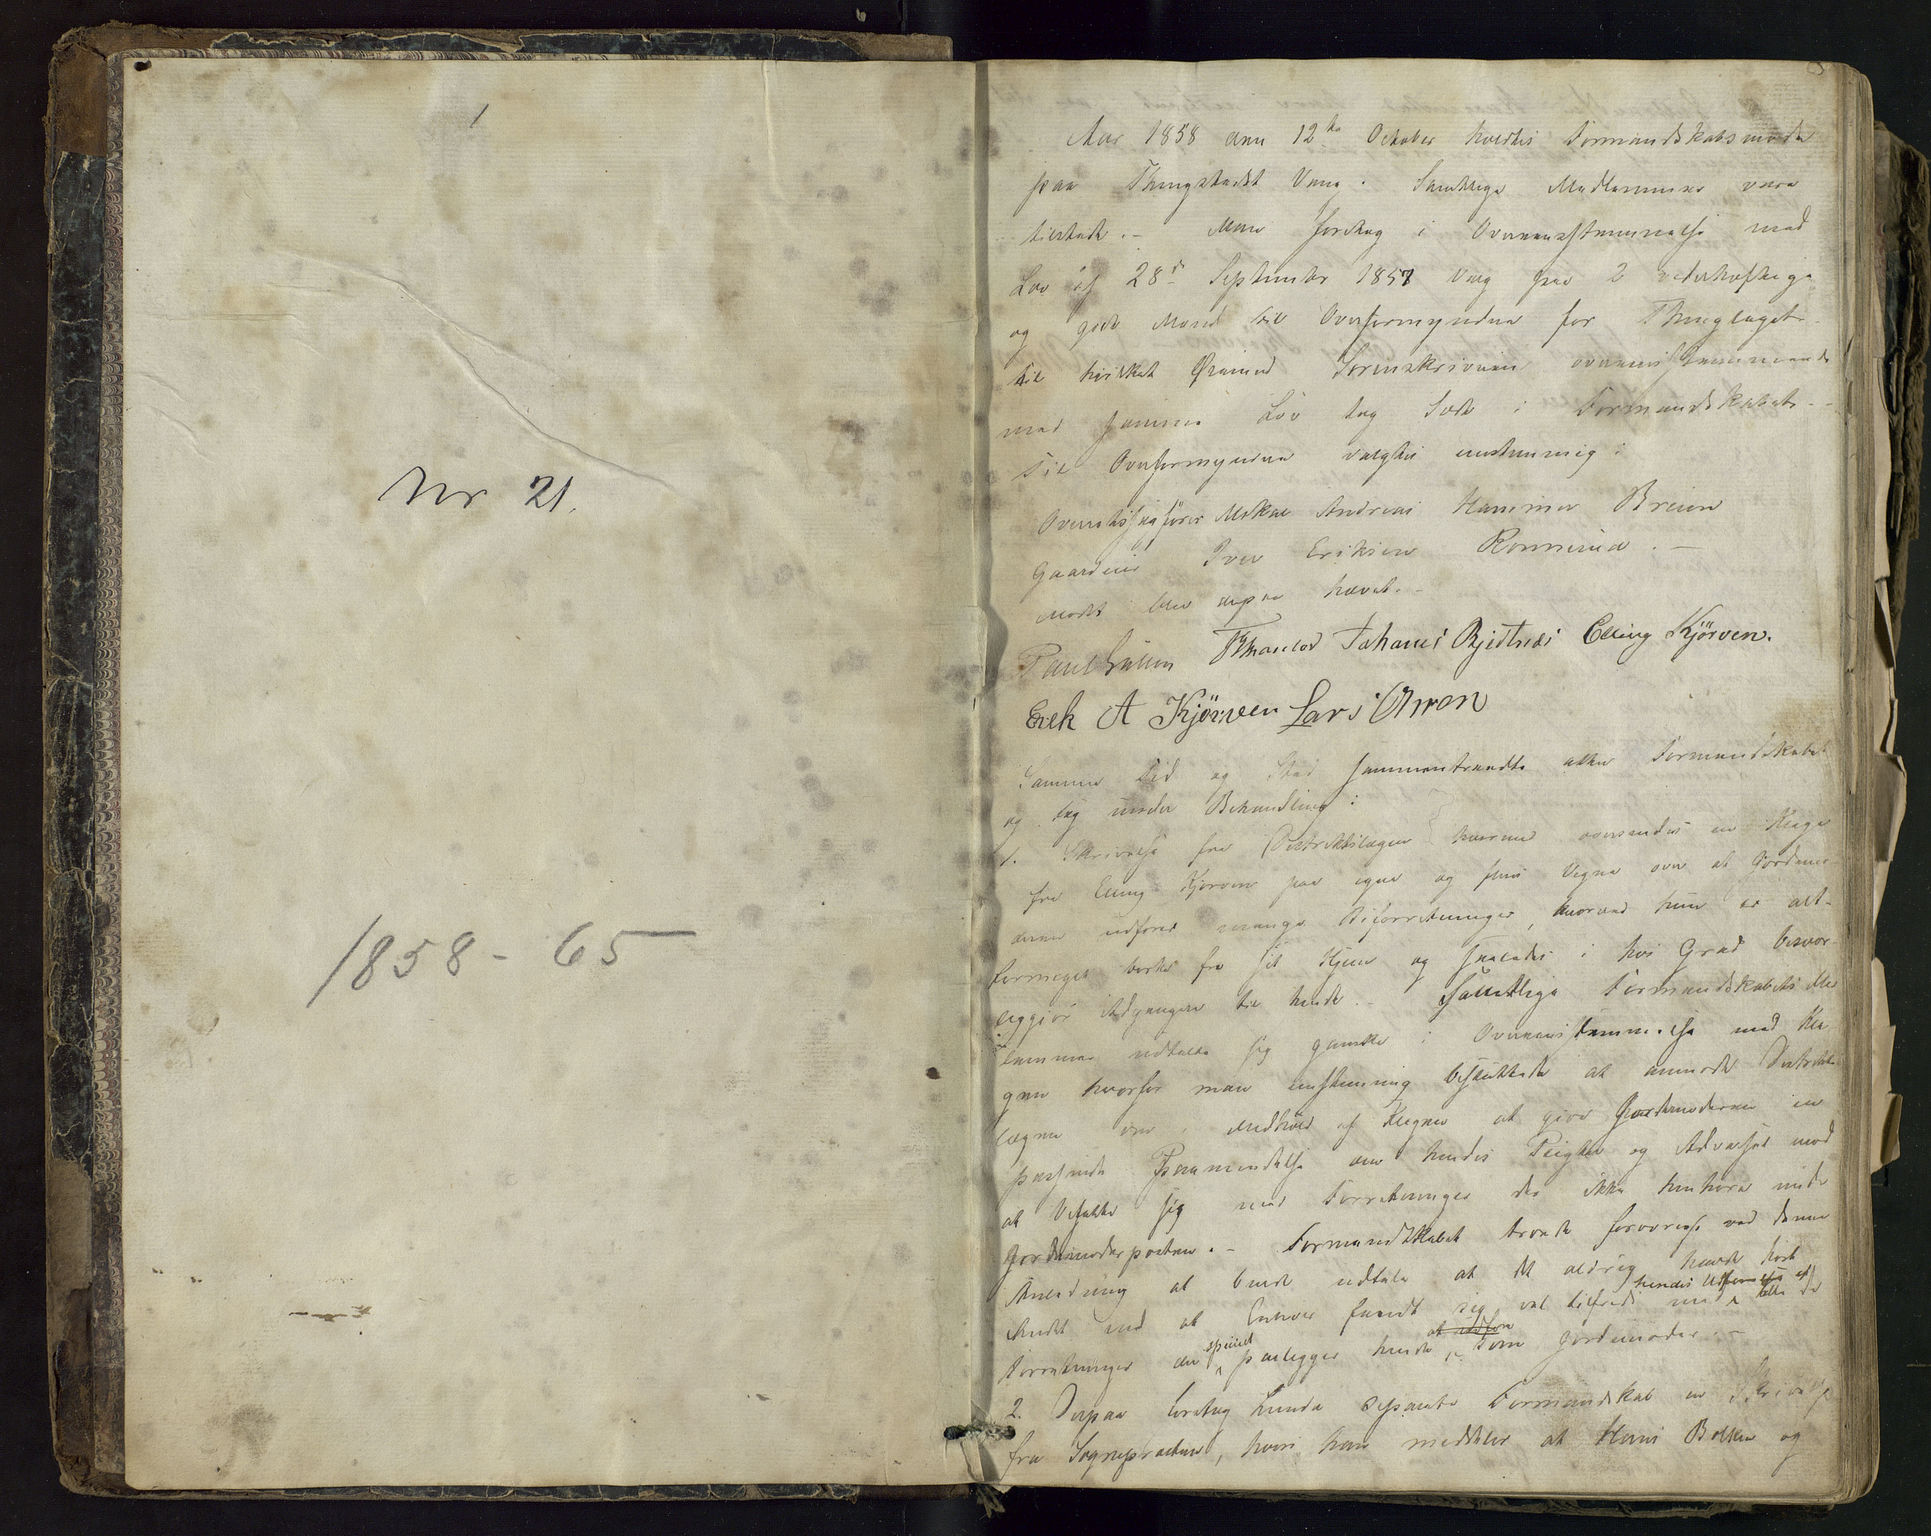 1
Nr 21.
1858 - 65
Aar 1858 den 12te October holdtes Formandskabsmøde
paa Thingstedet Vang. Samtlige Medlemmer vare
tilstede. - Man foretog i Overeensstemmelse med
Lov af 28de September 1857 Valg paa 2 vederhæftige
og gode Mænd til Overformyndere for Thinglaget
til hvilket Øiemed Sorenskriveren overeensstemmende
med samme Lov tog Sæde i Formandskabet. -
Til Overformyndere valgtes eenstemmig:
Overretssagfører Andreas Hammer Breien
Gaardeier Iver Eriksen
Mødet blev derpaa hævet. -
Paul Thomas Johanes Elling Kjörven.
Erik A Kjörven Lars
Samme Tid og Sted sammentraadte atter Formandskabet
og tog under Behandling:
1. Skrivelse fra Distriktslægen hvormed oversendes en Klage
fra Elling Kjørven paa egne og fleres Vegne over at Gjordemo-
deren udfører mange Biforretninger, hvorved hun er alt-
formeget borte fra sit Hjem og saaledes i høi Grad besvær-
liggjør Adgangen til hende. - Samtlige Formandskabets Med
lemmer udtalte sig ganske i Overeensstemmelse med Kla-
gen hvorfor man eenstemmig besluttede at anmode Distrikts-
lægen om i Medhold af Klagen at give Gjordemoderen en
passende om hendes Pligter og Advarsel mod
at befatte sig med Forretninger der ikke henhøre under
Gjordemoderposten. - Formandskabet troede forøvrigt ved denne
Anledning at burde udtale at det aldrig havde hørt
Andet end at Enhver fandt sig vel tilfreds med hendes Udførelse af de
Forretninger der specielt paaligger hende at udføre som Gjordemoder. -
2. Derpaa foretog Lunde separate Formandskab en Skrivelse
fra Sognepræsten, hvori han meddeler at Hans og